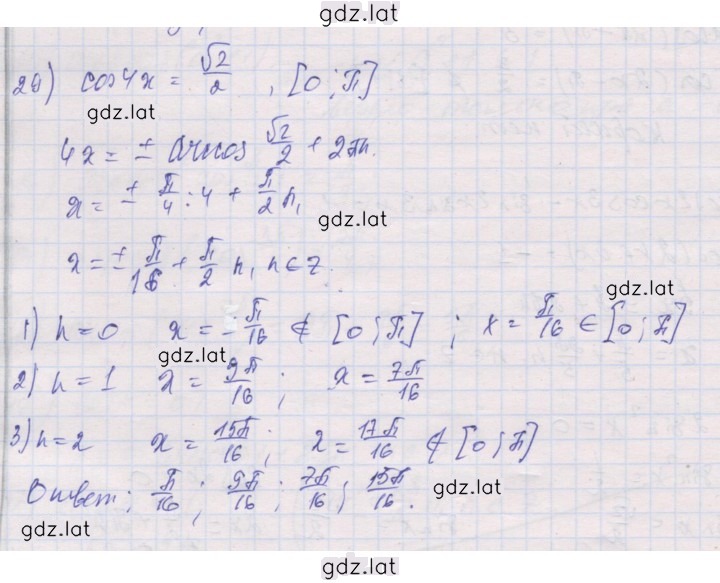 gdz.lat
29) cos4x = √2/2 , [0 ; π]
gdz.lat
4x = ± arccos √2/2 + 2πn.
x = ± π/4 : 4 + π/2 n,
gdz.lat
x = ± π/16 + π/2 n, n ∈ Z.
gdz.lat
1) n = 0 x = - π/16 ∉ [0 ; π] ; x = π/16 ∈ [0 ; π]
gdz.lat
2) n = 1 x = 9π/16 ; x = 7π/16
3) n = 2 x = 15π/16 ; x = 17π/16 ∉ [0 ; π]
Ответ: π/16 ; 9π/16 ; 7π/16 ; 15π/16.
gdz.lat
gdz.lat
gdz.lat